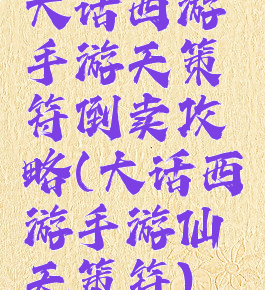 大话西游
手游天策
符倒卖攻
略(大话西
游手游仙
天策符)